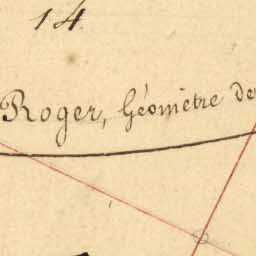 14.
Roger, Géomètre de